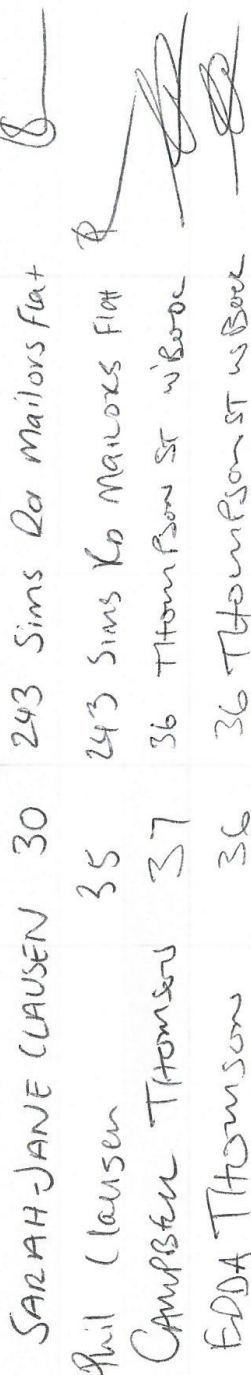 SARAH-JANE CLAUSEN 30 243 Sims Rd Mailors Flat
Phil Clausen 35 243 Sims Rd Mailors Flat
CAMPBELL THOMSON 37 36 THOMPSON ST W'Bool
EDDA THOMSON 36 36 THOMPSON ST W'Bool